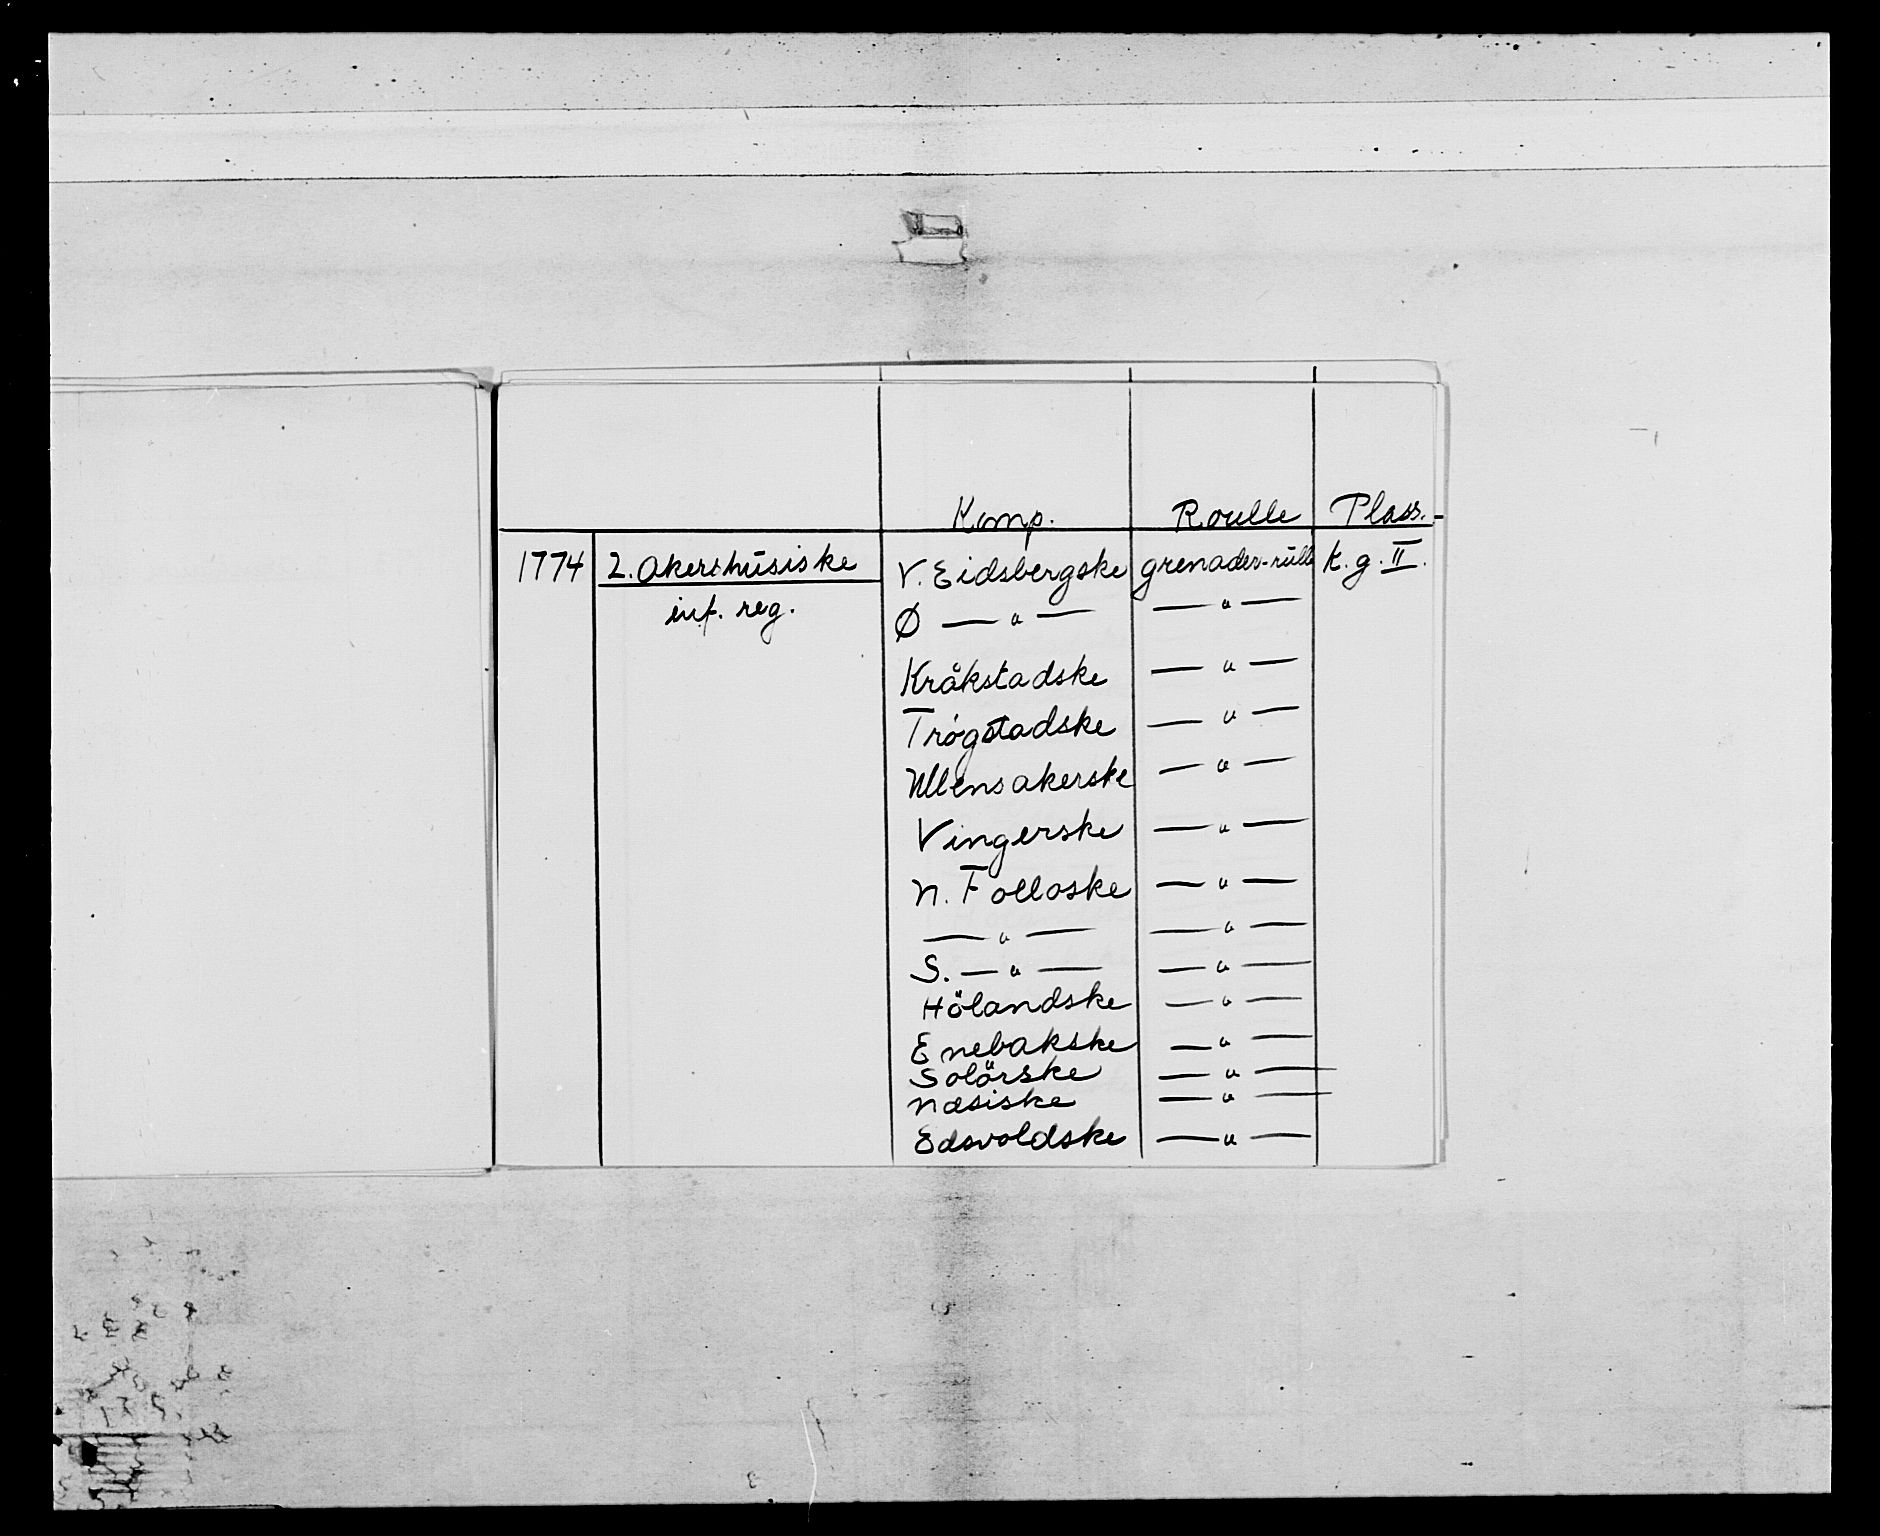 Komp. Roulle Plass.
1774 2. Akershusiske V. Eidsbergske grenader-rulle K. g. II.
inf. reg. Ø — " — — " —
Kråkstadske — " —
Trøgstadske — " —
Ullensakerske — " —
Vingerske — " —
N. Folloske — " —
— " — — " —
S. — " — — " —
Hölandske — " —
Enebakske — " —
Solörske — " —
Næsiske — " —
Edsvoldske — " —